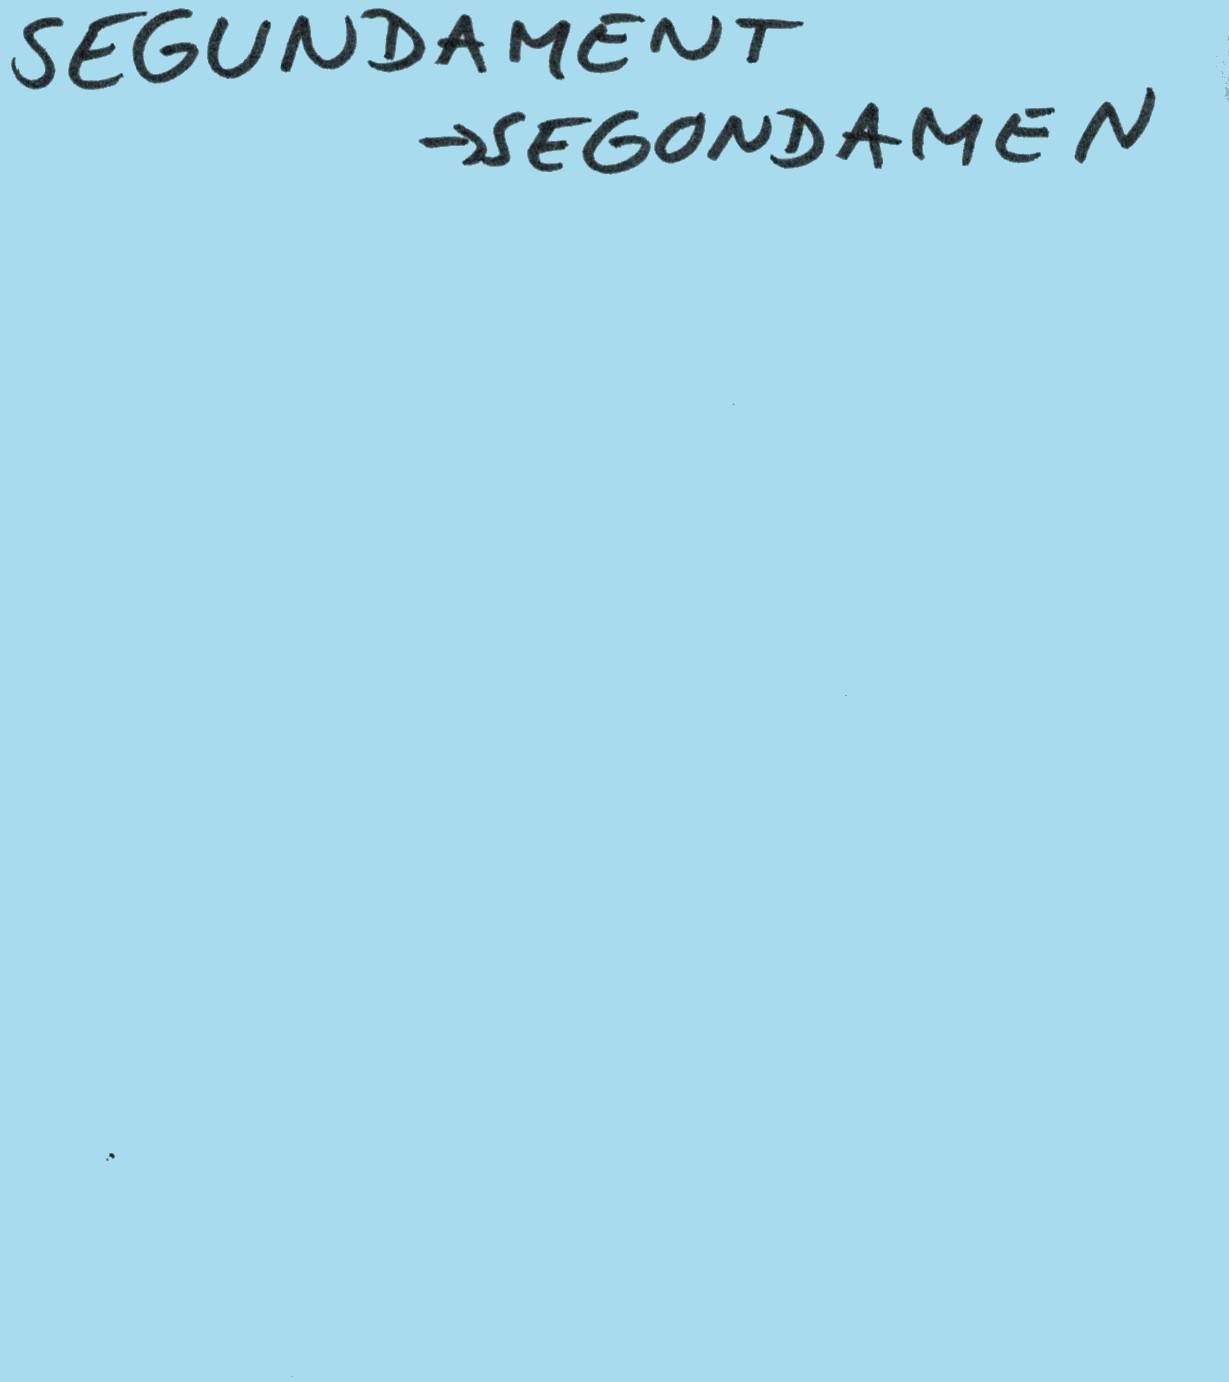 SEGUNDAMENT
→SEGONDAMEN